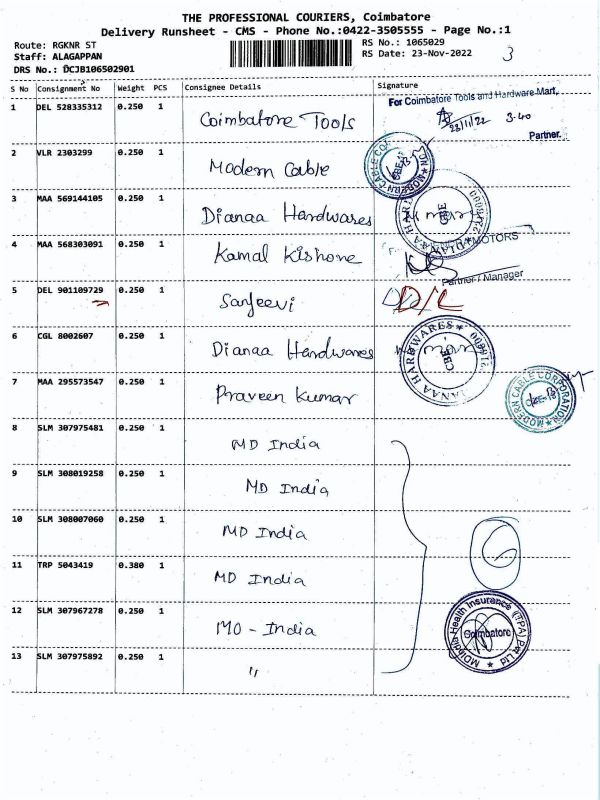 THE PROFESSIONAL COURIERS, Coimbatore
Delivery Runsheet - CMS - Phone No.:0422-3505555 - Page No.:1
Route: RGKNR ST
Staff: ALAGAPPAN
DRS No.: DCJB106502901
RS No.: 1065029
RS Date: 23-Nov-2022
3
S No Consignment No Weight PCS Consignee Details Signature
1 DEL 528335312 0.250 1 Coimbatore Tools
For Coimbatore Tools and Hardware Mart,
23/11/22 3.40
Partner.
2 VLR 2303299 0.250 1 Modern Cable
MODERN CABLE CBE
3 MAA 569144105 0.250 1 Dianaa Hardwares
DIANAA HARD CBE
4 MAA 568303091 0.250 1 Kamal Kishore
MOTORS
Partner / Manager
5 DEL 901109729 0.250 1 Sanjeevi D/L
6 CGL 8002607 0.250 1 Dianaa Hardwares
DIANAA HARDWARES CBE
7 MAA 295573547 0.250 1 Praveen Kumar
MODERN CABLE CORPORATION
8 SLM 307975481 0.250 1 MD India
9 SLM 308019258 0.250 1 MD India
10 SLM 308007060 0.250 1 MD India
11 TRP 5043419 0.380 1 MD India
12 SLM 307967278 0.250 1 MD - India
MDIndia Health Insurance (TPA) Pvt Ltd
Coimbatore
13 SLM 307975892 0.250 1 "